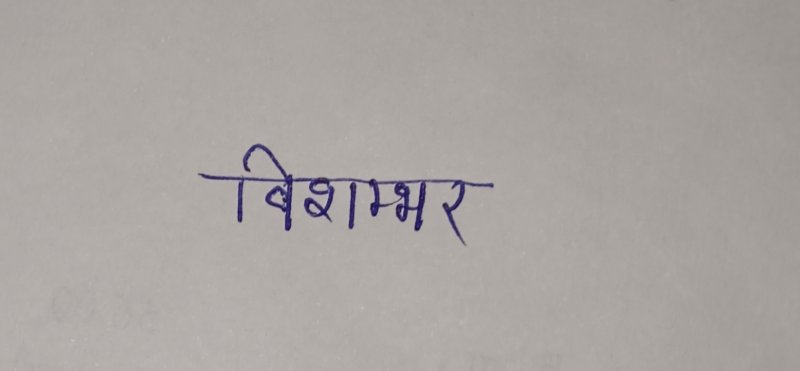 विशम्भर